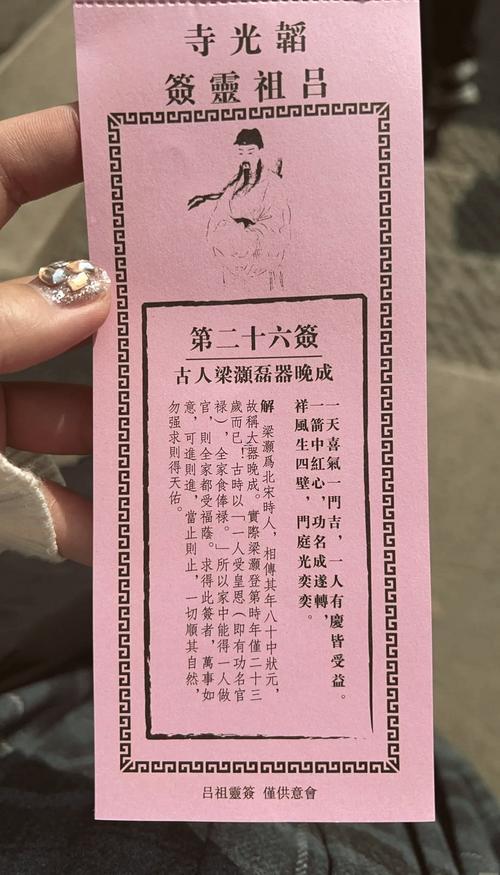 韜光寺
呂祖靈簽
第二十六簽
古人梁灝磊器晚成
一天喜氣一門吉，一人有慶皆受益。
一箭中紅心，功名成遂轉，
祥風生四壁，門庭光奕奕。
解 梁灝爲北宋時人，相傳其年八十中狀元，
故稱大器晚成。實際梁灝登第時年僅二十三
歲而已！古時以「一人受皇恩（即有功名官
祿），全家食俸祿。」所以家中能得一人做
官，則全家都受福蔭。求得此簽者，萬事如
意，可進則進，當止則止，一切順其自然，
勿强求則得天佑。
呂祖靈簽 僅供意會